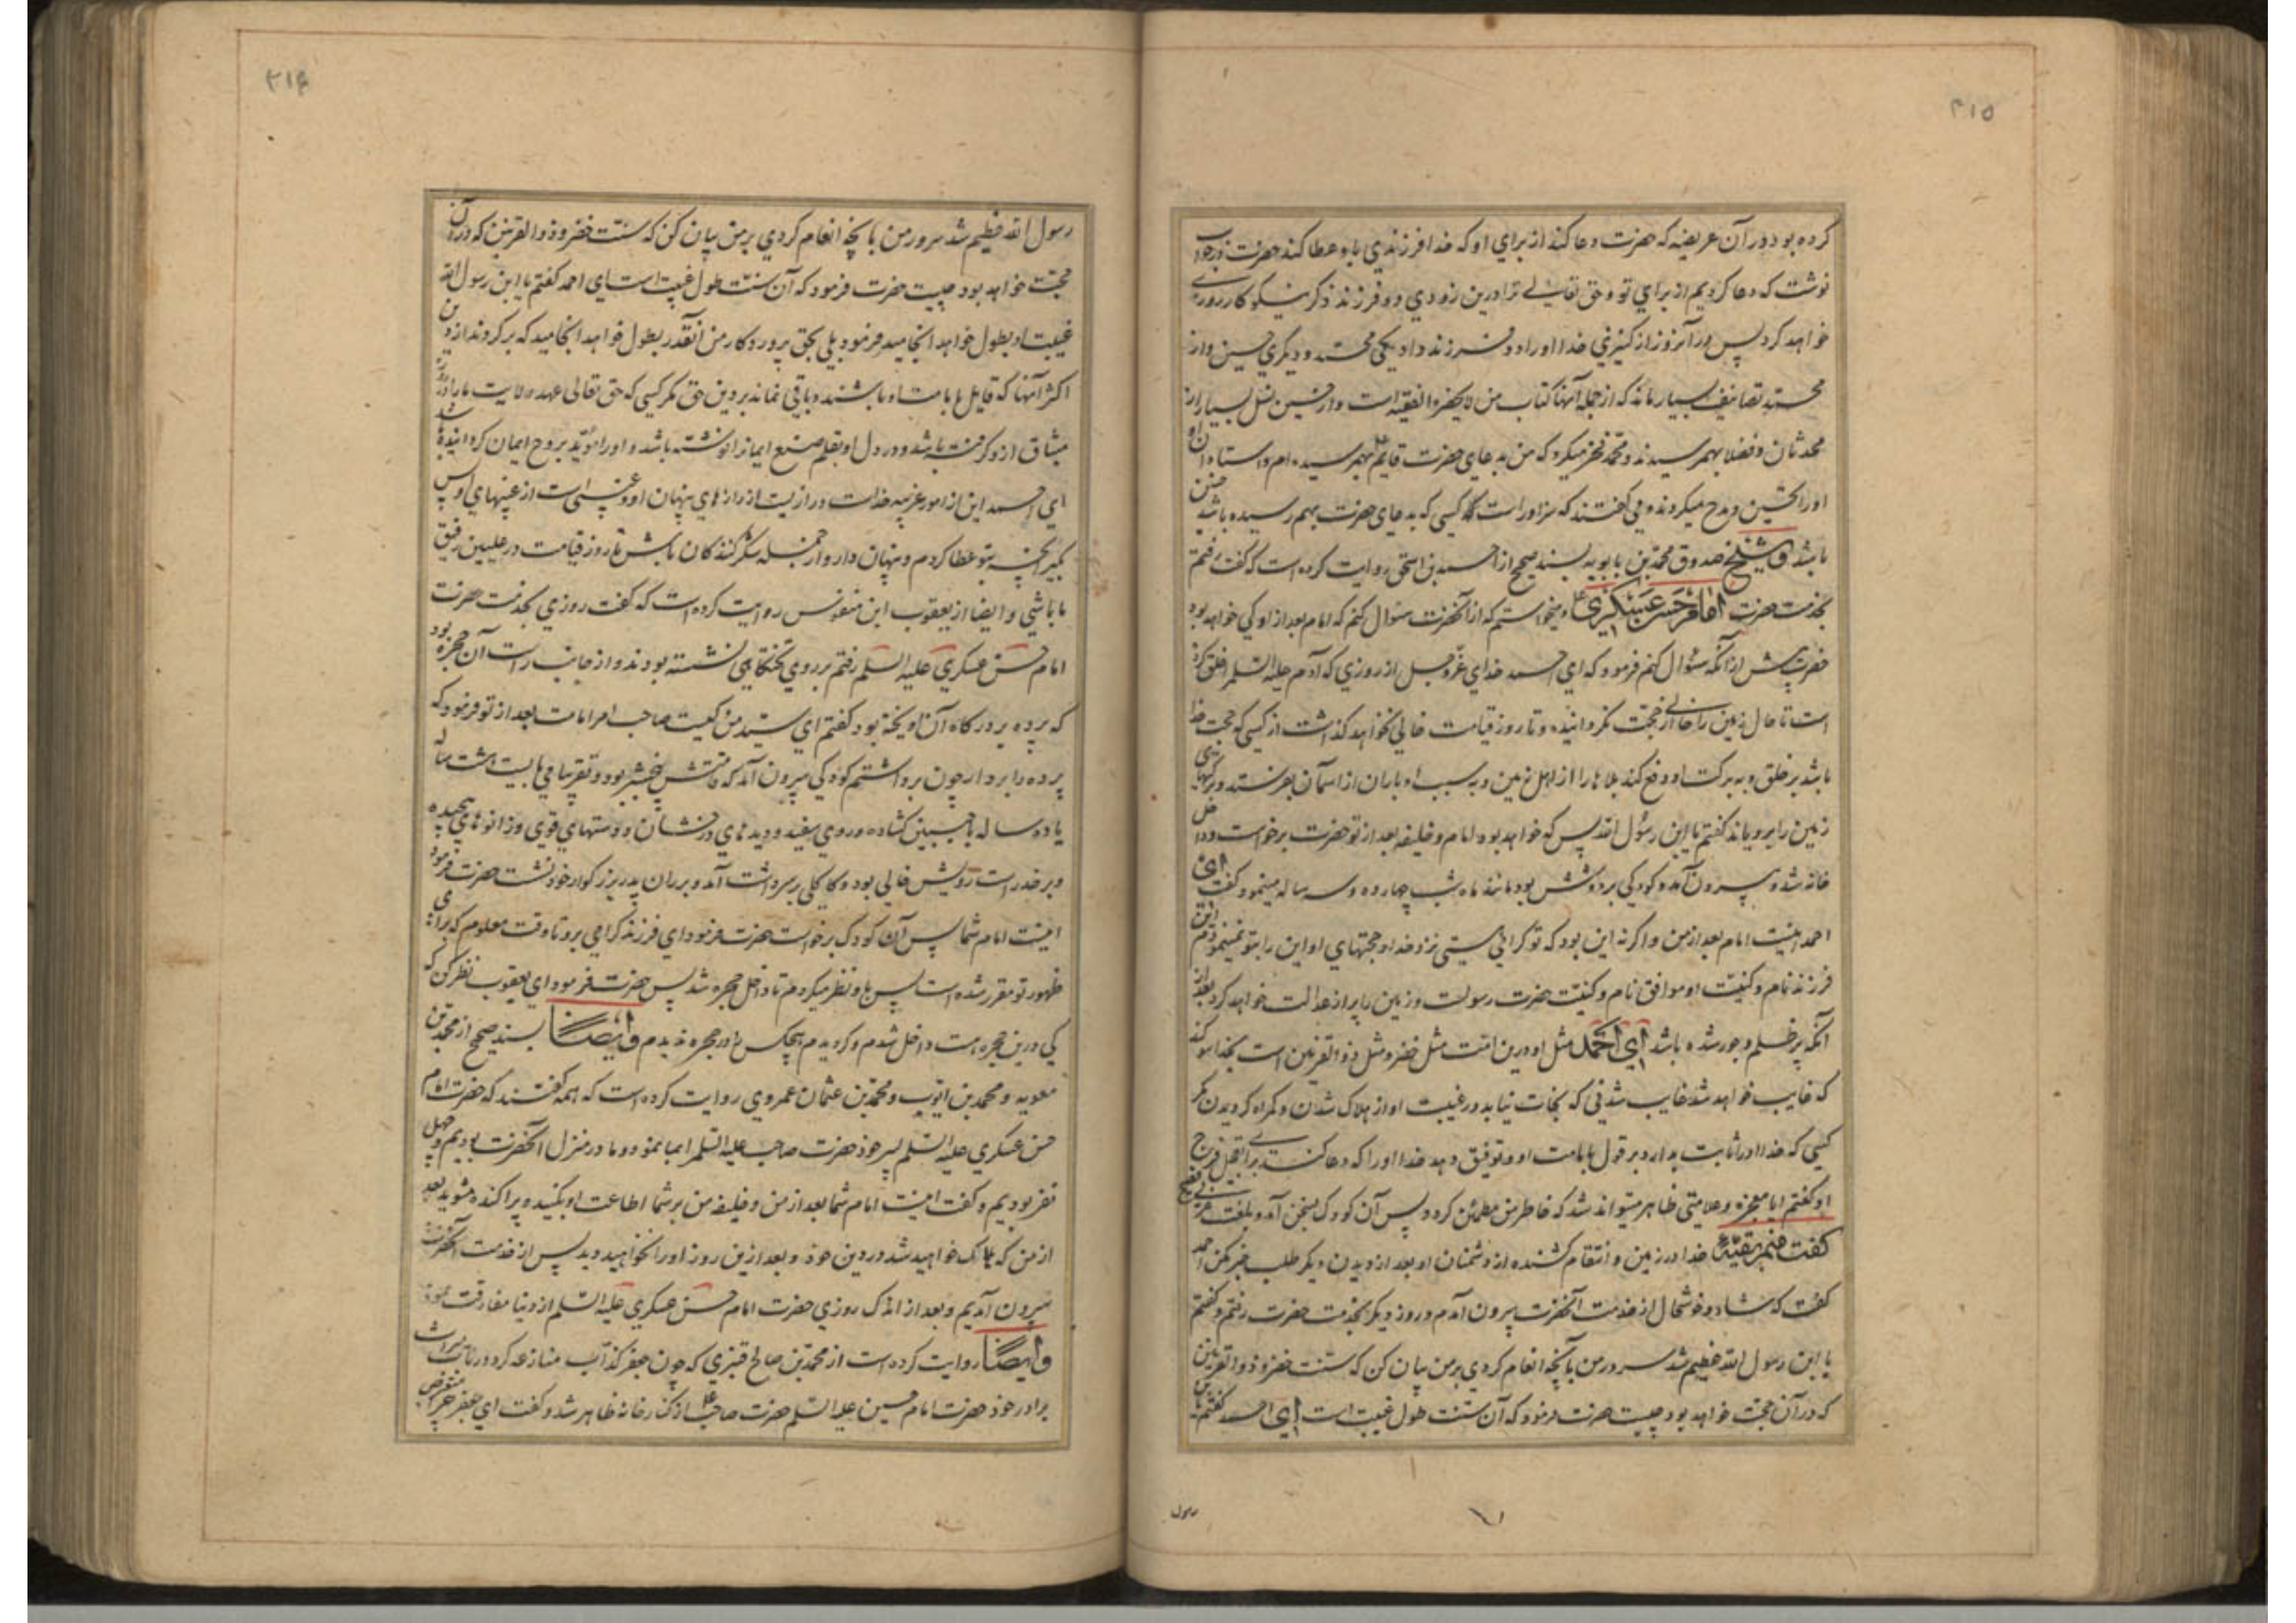 ۳۱۵
کرده بود در آن عریضه که حضرت دعا کند از برای او که خدا فرزندی باو عطا کند حضرت در جواب
نوشت که دعا کردیم از برای تو و حق تعالی ترا درین زودی دو فرزند ذکر نیکو کار روزی
خواهد کرد پس در آنزودی از کنیزی خدا او را دو فرزند داد یکی محمد و دیگری حسین و از
محمد تصانیف بسیار ماند که از جمله آنها کتاب من لا یحضره الفقیه است و از حسین نسل بسیار از
محدثان و فضلا بهم رسیدند و محمد فخر میکرد که من بدعای حضرت قایم ع بهم رسیده‌ام و استادان
او را تحسین و مدح میکردند و می گفتند که سزاوار است کسی که بدعای حضرت بهم رسیده باشد چنین
باشد و شیخ صدوق محمد بن بابویه بسند صحیح از احمد بن اسحق روایت کرده است که گفت رفتم
بخدمت حضرت امام حسن عسکری ع و میخواستم که از آنحضرت سئوال کنم که امام بعد از او کی خواهد بود
حضرت پیش از آنکه سئوال کنم فرمود که ای احمد خدای عزوجل از روزی که آدم علیه السلم را خلق کرده
است تا حال زمین را خالی از حجت نگردانیده و تا روز قیامت خالی نخواهد گذاشت از کسی که حجت خدا
باشد بر خلق و به برکت او دفع کند بلاها را از اهل زمین و به سبب او باران از آسمان بفرستد و برکتهای
زمین را برویاند گفتم یا ابن رسول الله پس که خواهد بود امام و خلیفه بعد از تو حضرت برخواست و داخل
خانه شد و بیرون آمد و کودکی بر دوشش بود مانند ماه شب چهارده و سه ساله مینمود و گفت ای
احمد اینست امام بعد از من و اگر نه این بود که تو گرامی هستی نزد خدا و حجتهای او این را بتو نمینمودم این
فرزند نام و کنیت او موافق نام و کنیت حضرت رسولست و زمین را پر از عدالت خواهد کرد بعد از
آنکه پر ظلم و جور شده باشد ای احمد مثل او درین امت مثل خضر و مثل ذو القرنین است بخدا سوگند
که غایب خواهد شد غایب شدنی که نجات نیابد در غیبت او از هلاک شدن و گمراه گردیدن مگر
کسی که خدا او را ثابت بدارد بر قول بامامت او و توفیق دهد خدا او را که دعا کند برای تعجیل فرج
او گفتم ایا معجزه و علامتی ظاهر میتواند شد که خاطر من مطمئن گردد پس آن کودک بسخن آمد و بلغت عربی فصیح
گفت منم بقیة خدا در زمین و انتقام کشنده از دشمنان او بعد از دیدن دیگر طلب خبر مکن احمد
گفت که شاد و خوشحال از خدمت آنحضرت بیرون آمدم و روز دیگر بخدمت حضرت رفتم و گفتم
یا ابن رسول الله عظیم شد سرور من بآنچه انعام کردی بر من بیان کن که سنت خضر و ذو القرنین
که در آن حجت خواهد بود چیست حضرت فرمود که آن سنت طول غیبت است ای احمد گفتم یا بن
رسول
۳۱۶
رسول الله عظیم شد سرور من بانچه انعام کردی بر من بیان کن که سنت خضر و ذو القرنین که در آن
حجت خواهد بود چیست حضرت فرمود که آن سنت طول غیبت است ای احمد گفتم یا ابن رسول الله
غیبت او بطول خواهد انجامید فرمود بلی بحق پروردگار من آنقدر بطول خواهد انجامید که برگردند از دین
اکثر آنها که قایل بامامت او باشند و باقی نماند بر دین حق مگر کسی که حق تعالی عهد ولایت ما را در روز
میثاق ازو گرفته باشد و در دل او بقلم صنع ایمان را نوشته باشد و او را مؤید بروح ایمان گردانیده باشد
ای احمد این از امور غریبه خداست و رازیست از رازهای پنهان او و غیبی است از غیبهای او پس
بگیر آنچه بتو عطا کردم و پنهان دار و از جمله شکر کنندگان باش تا روز قیامت در علیین رفیق
ما باشی و ایضا از یعقوب ابن منفوس روایت کرده است که گفت روزی بخدمت حضرت
امام حسن عسکری علیه السلم رفتم بر روی تختگاهی نشسته بودند و از جانب راست آن حجره بود
که پرده بر درگاه آن آویخته بود گفتم ای سید من کیست صاحب امر امامت بعد از تو فرمود که
پرده را بردار چون برداشتم کودکی بیرون آمد که قامتش پنج شبر بود و تقریبا می بایست هشت ساله
یا ده ساله با جبین گشاده و روی سفید و دیدهای درخشان و دستهای قوی و زانوهای پیچیده
و بر خد راست رویش خالی بود و کاکلی بر سر داشت آمد و بر ران پدر بزرگوار خود نشست حضرت فرمود
اینست امام شما پس آن کودک برخواست حضرت فرمود ای فرزند گرامی برو تا وقت معلوم که برای
ظهور تو مقرر شده است پس باو نظر میکردم تا داخل حجره شد پس حضرت فرمود ای یعقوب نظر کن که
کی درین حجره است داخل شدم و گردیدم هیچکس را در حجره ندیدم و ایضا بسند صحیح از محمد بن
معویه و محمد بن ایوب و محمد بن عثمان عمروی روایت کرده است که همه گفتند که حضرت امام
حسن عسکری علیه السلم پسر خود حضرت صاحب علیه السلم را بما نمود و ما در منزل آنحضرت بودیم و چهل
نفر بودیم و گفت اینست امام شما بعد از من و خلیفه من بر شما اطاعت او بکنید و پراکنده مشوید بعد
از من که هلاک خواهید شد در دین خود و بعد ازین روز او را نخواهید دید پس از خدمت آنحضرت
بیرون آمدیم و بعد از اندک روزی حضرت امام حسن عسکری علیه السلم از دنیا مفارقت نمود
و ایضا روایت کرده است از محمد بن صالح قنبری که چون جعفر کذاب منازعه کرد در باب میراث
برادر خود حضرت امام حسین علیه السلم حضرت صاحب ع از کنار خانه ظاهر شد و گفت ای جعفر چرا متعرض